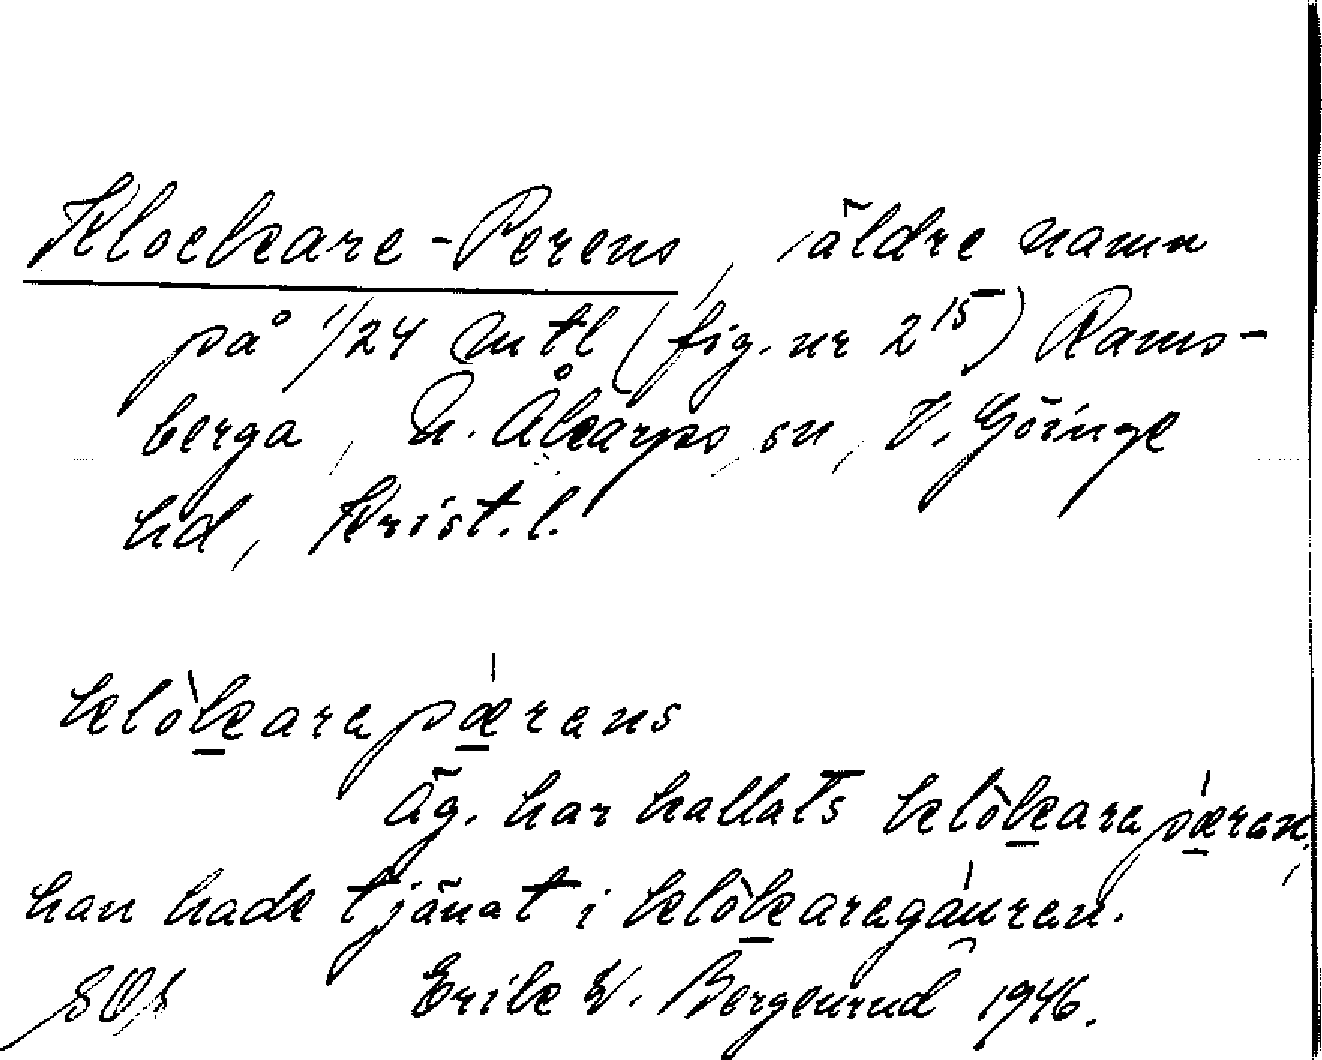 Klockare-Perens, äldre namn
på 1/24 mtl (fig. nr 2¹⁵) Rams-
berga, N. Åkarps sn, V. Göinge
hd, Krist. l.
klòkarapærans
Äg. har kallats klòkarapæran,
han hade tjänat i klòkaragáuren.
Erik W. Bergenrud 1946.